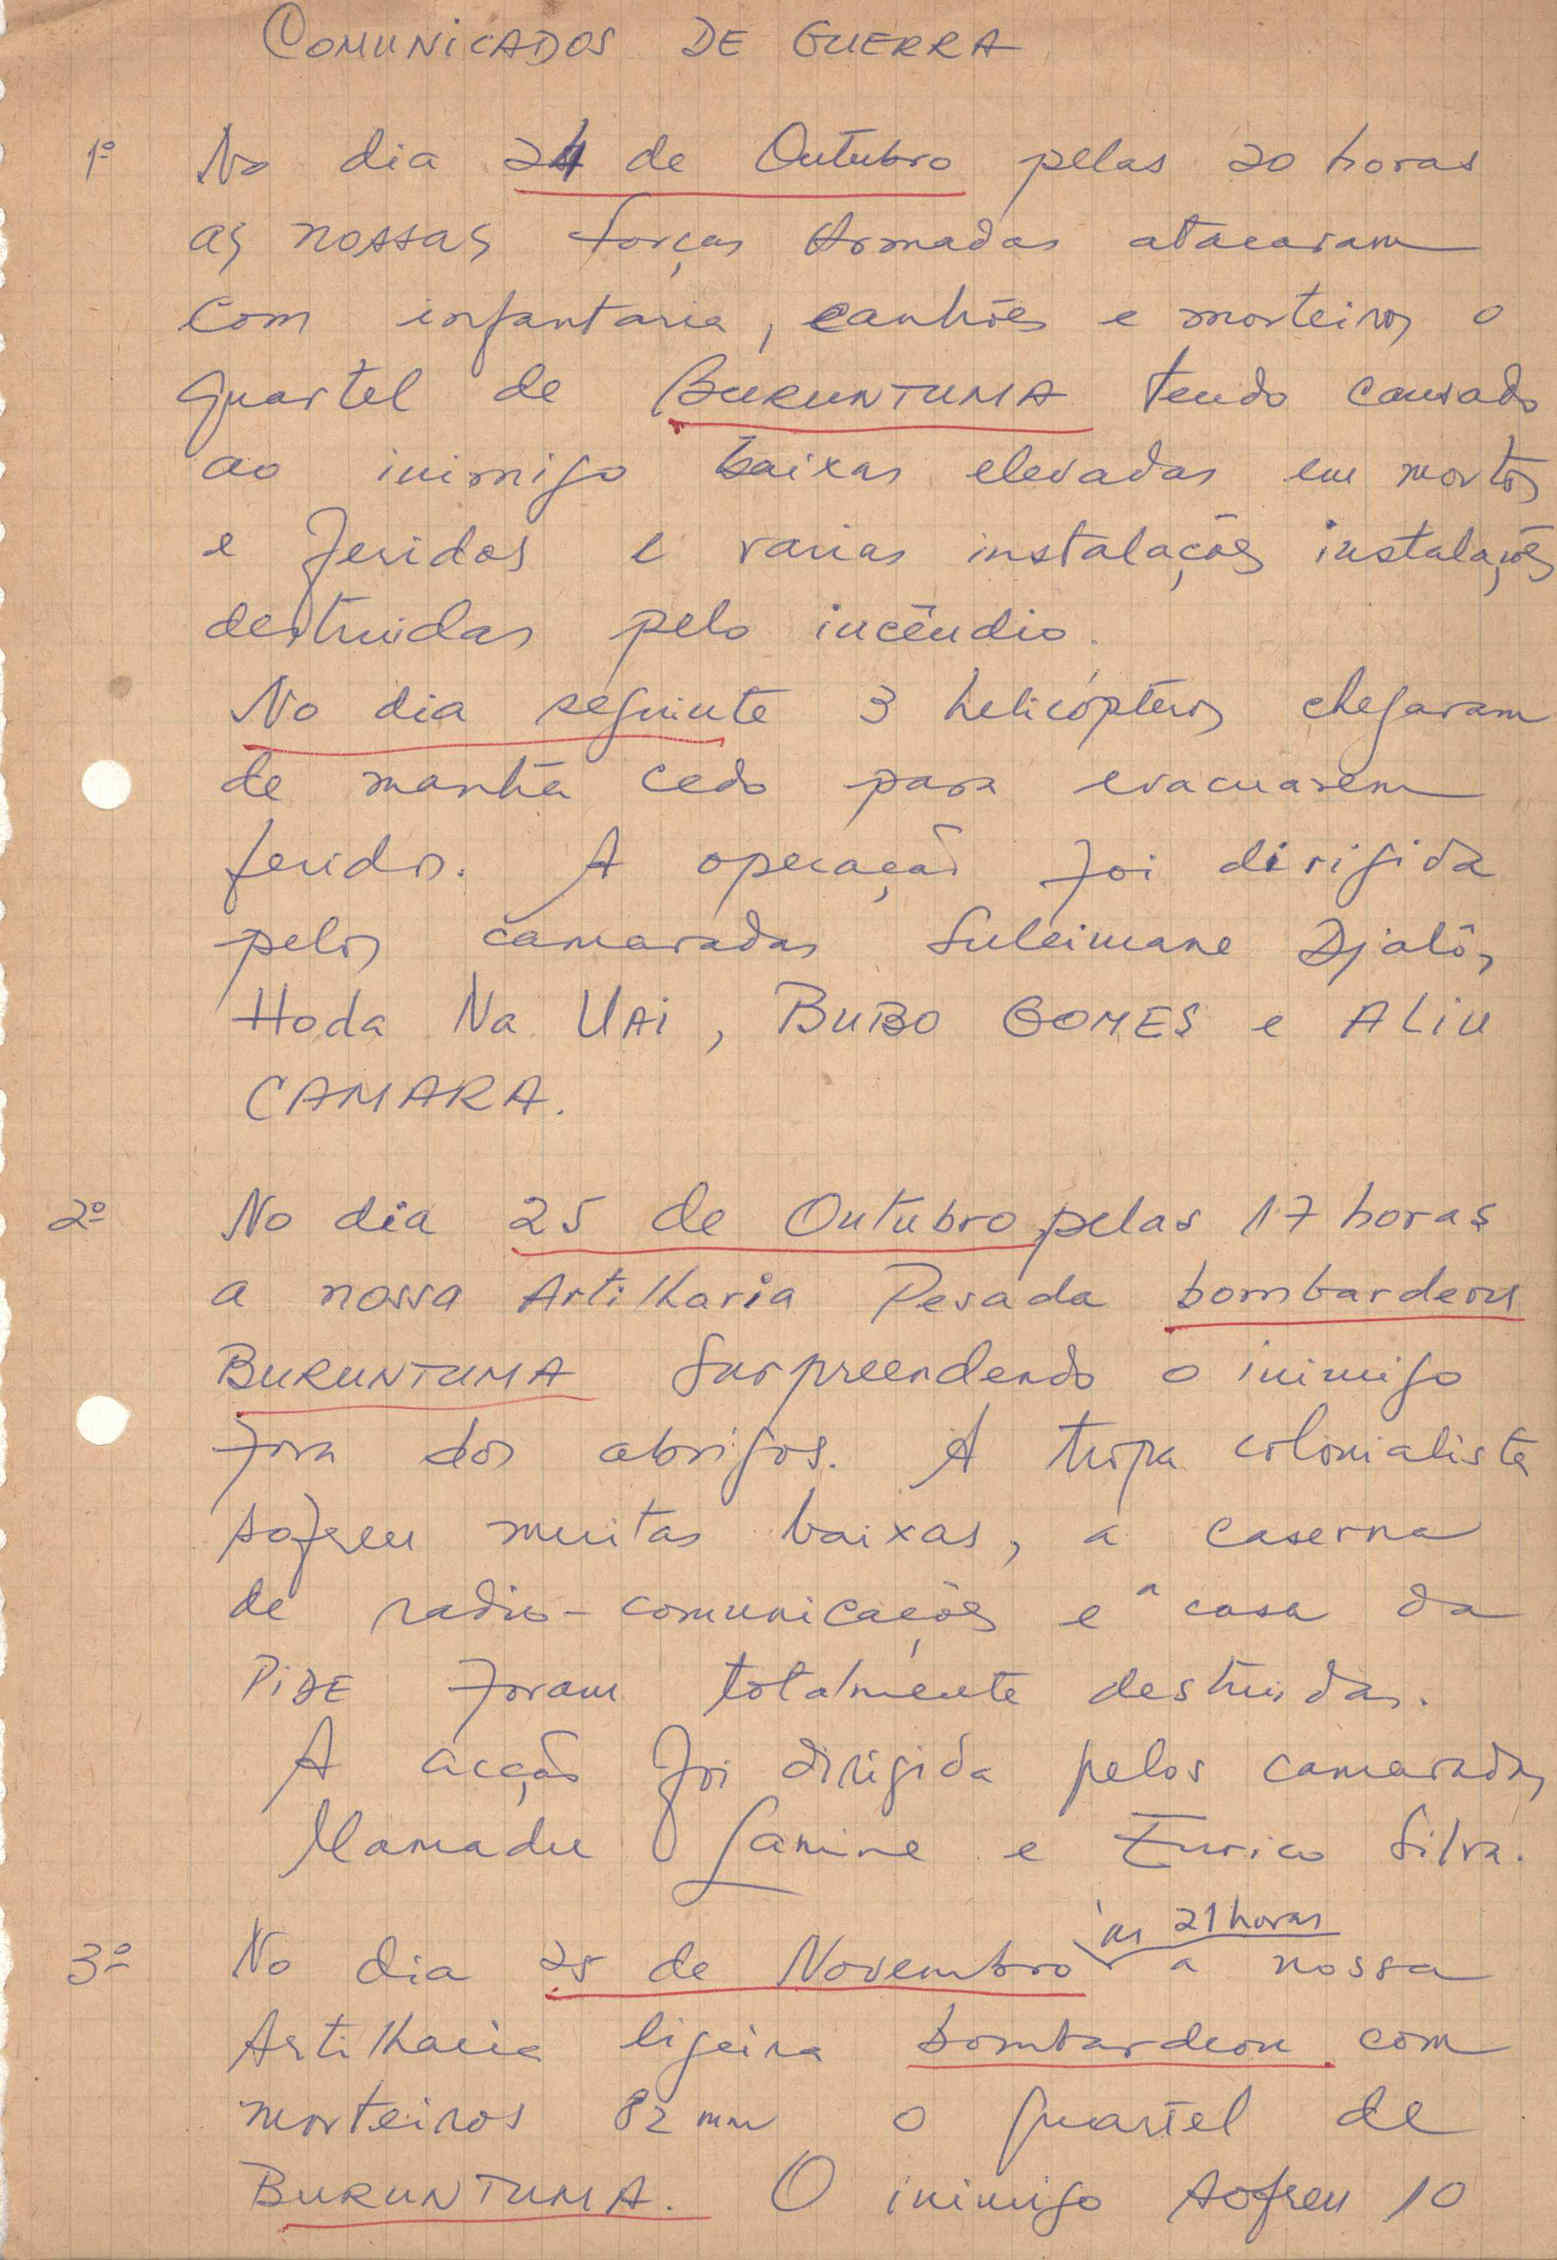 COMUNICADOS DE GUERRA
1º No dia 24 de Outubro pelas 20 horas
as nossas forças Armadas atacaram
com infantaria, canhões e morteiros o
quartel de BURUNTUMA tendo causado
ao inimigo baixas elevadas em mortos
e feridos e varias instalações instalações
destruidas pelo incêndio.
No dia seguinte 3 helicópteros chegaram
de manhã cedo para evacuarem
feridos. A operação foi dirigida
pelos camaradas Suleimane Djaló,
Hoda Na UAi, BUBO GOMES e ALIU
CAMARA.
2º No dia 25 de Outubro, pelas 17 horas
a nossa Artilharia Pesada bombardeou
BURUNTUMA Surpreendendo o inimigo
fora dos abrigos. A tropa colonialista
sofreu muitas baixas, a caserna
de radio-comunicações e a casa da
PiDE foram totalmente destruidas.
A acção foi dirigida pelos camaradas
Mamadu Lamine e Eurico Silva.
3º No dia 25 de Novembro às 21 horas a nossa
Artilharia ligeira bombardeou com
morteiros 82 mm o quartel de
BURUNTUMA. O inimigo sofreu 10